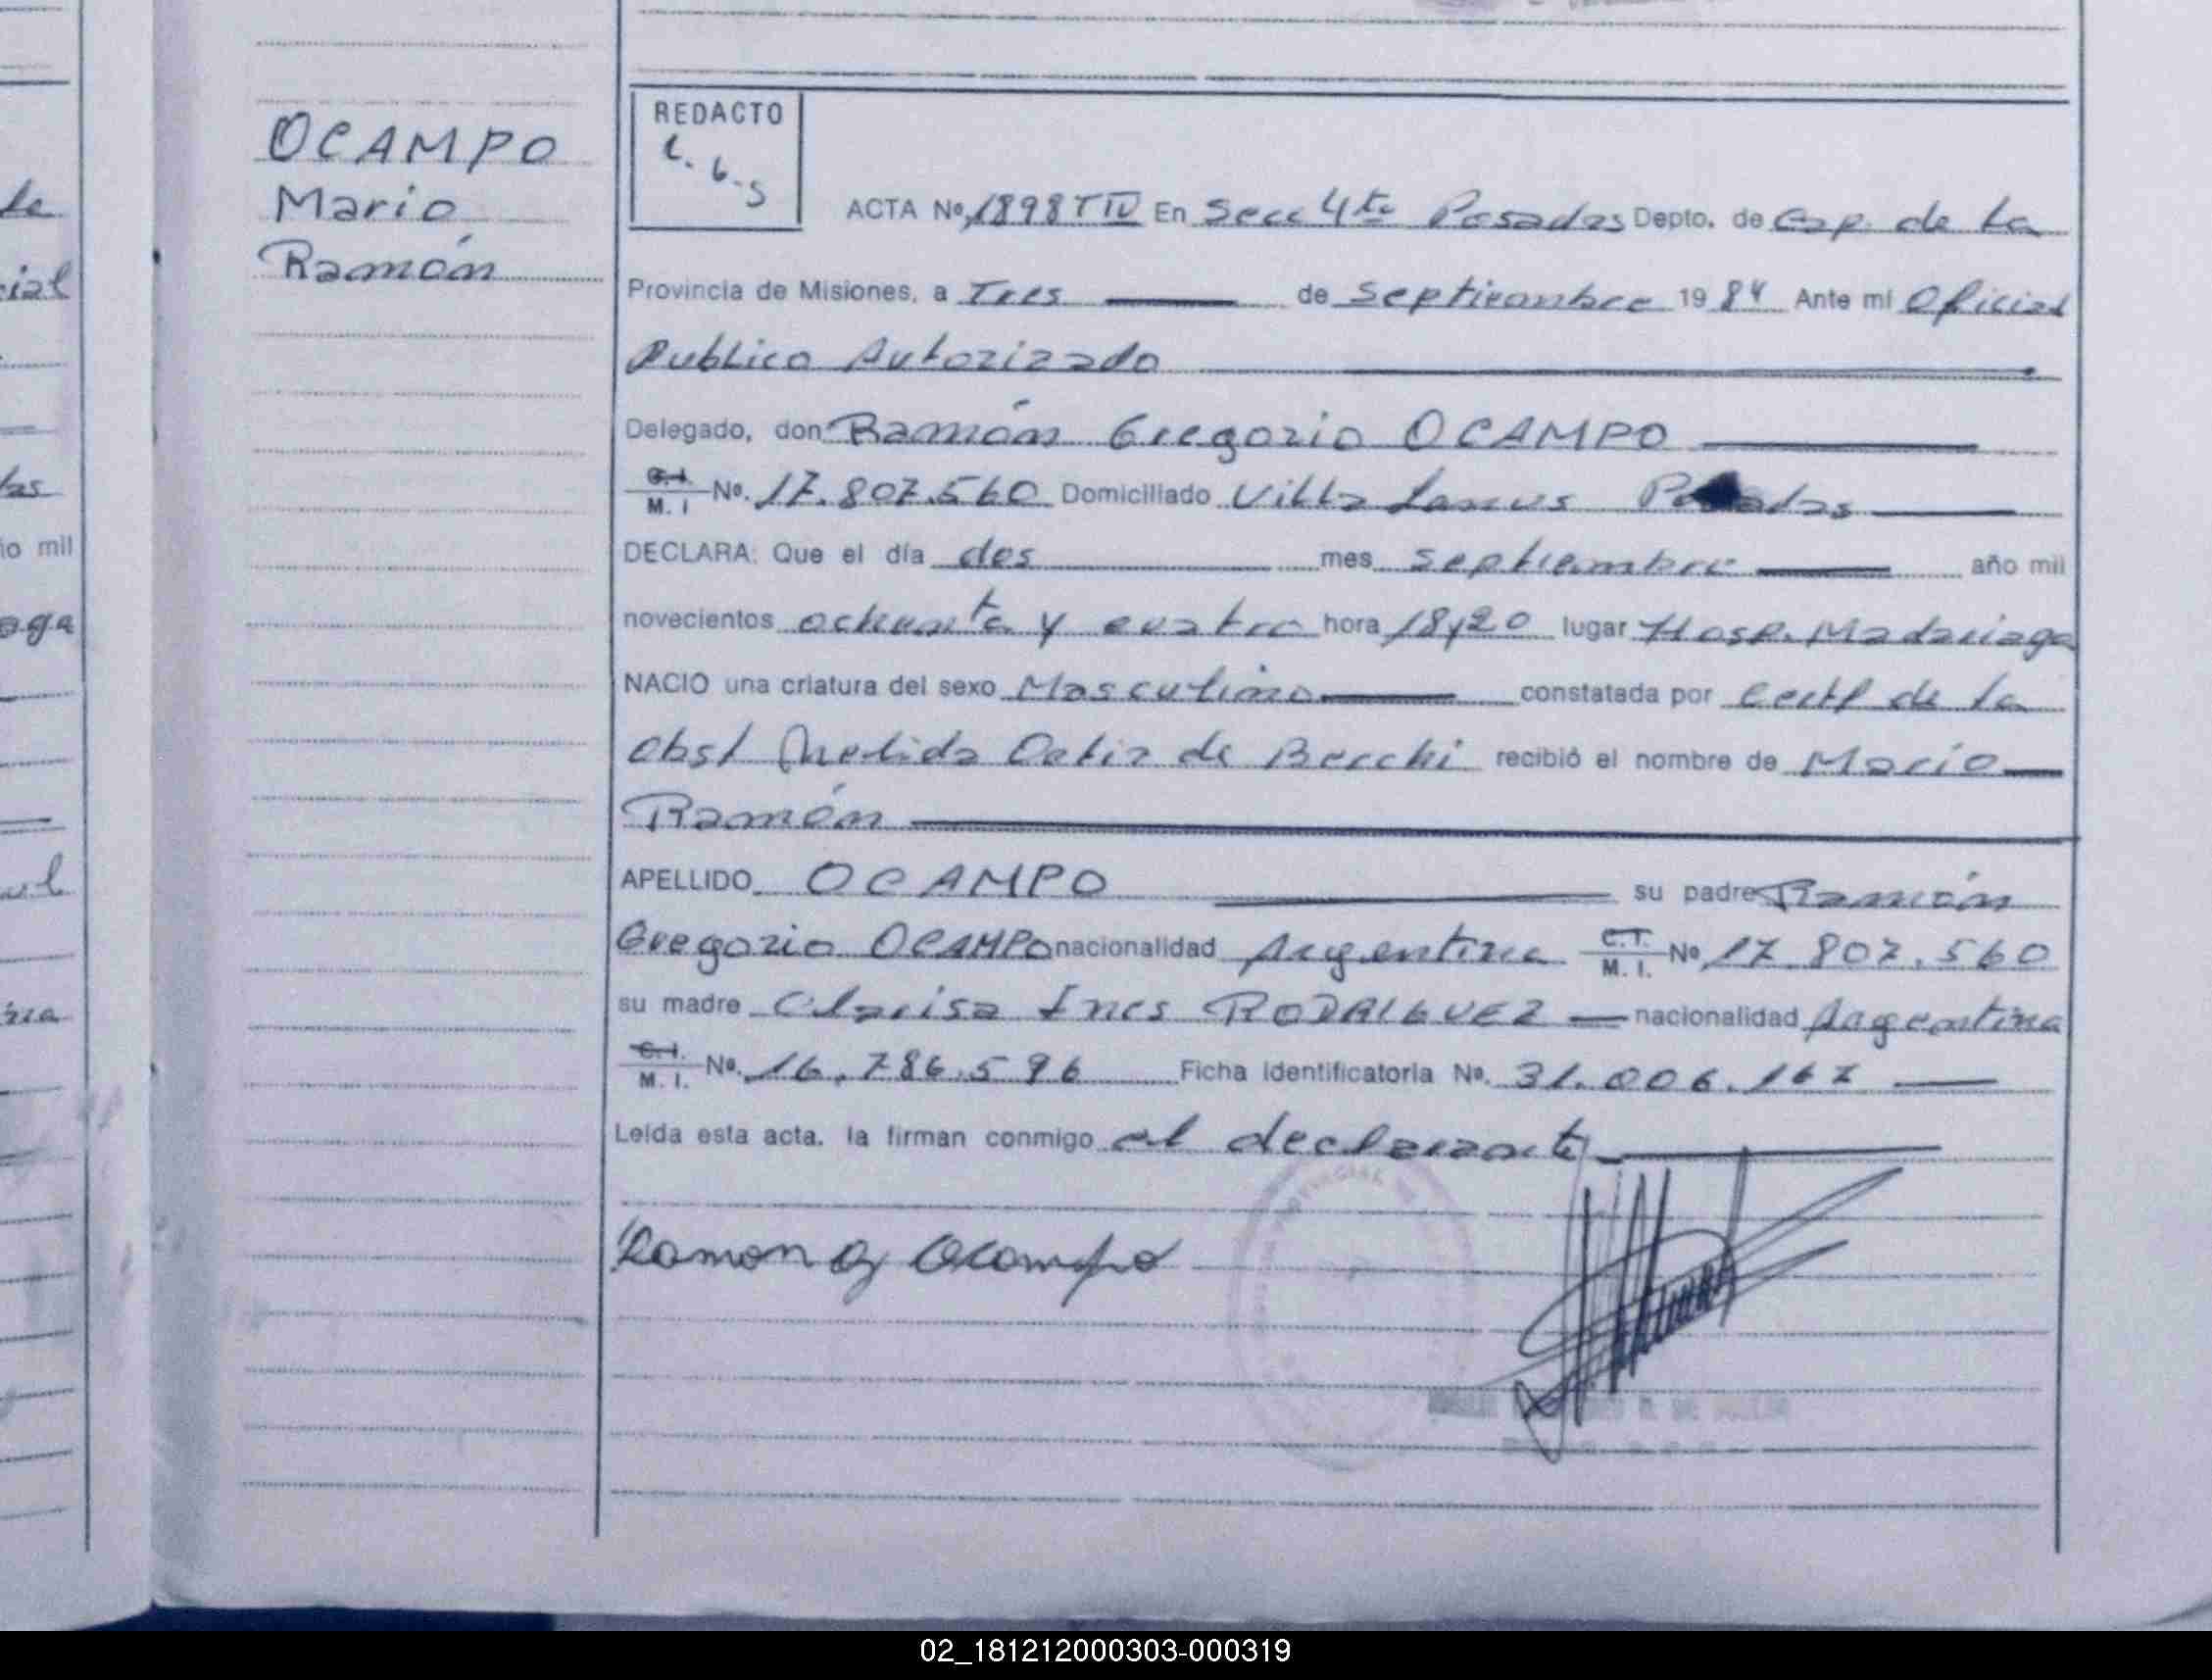 OCAMPO
Mario
Ramón
REDACTO
ACTA Nº 1898 TIV En Secc 4ta Posadas Depto. de Cap. de La
Provincia de Misiones, a Tres de Septiembre 1984 Ante mi Oficial
Publico Autorizado
Delegado, don Ramón Gregorio OCAMPO
C.I. M. I Nº. 17.807.560 Domiciliado Villa Lanus Posadas
DECLARA: Que el día dos mes septiembre año mil
novecientos ochenta y cuatro hora 18,20 lugar Hosp. Madariaga
NACIO una criatura del sexo Masculino constatada por Certf de la
Obst Ortiz de Becchi recibió el nombre de Mario
Ramón
APELLIDO OCAMPO su padre Ramón
Gregorio OCAMPO nacionalidad Argentina C.I. M. I. Nº 17.807.560
su madre Clarisa Ines RODRIGUEZ nacionalidad Argentina
C.I. M. I. Nº. 16.786.596 Ficha Identificatoria Nº. 31.006.167
Leída esta acta. la firman conmigo el declarante
Ramon G Ocampo
PROVINCIAL
02_181212000303-000319